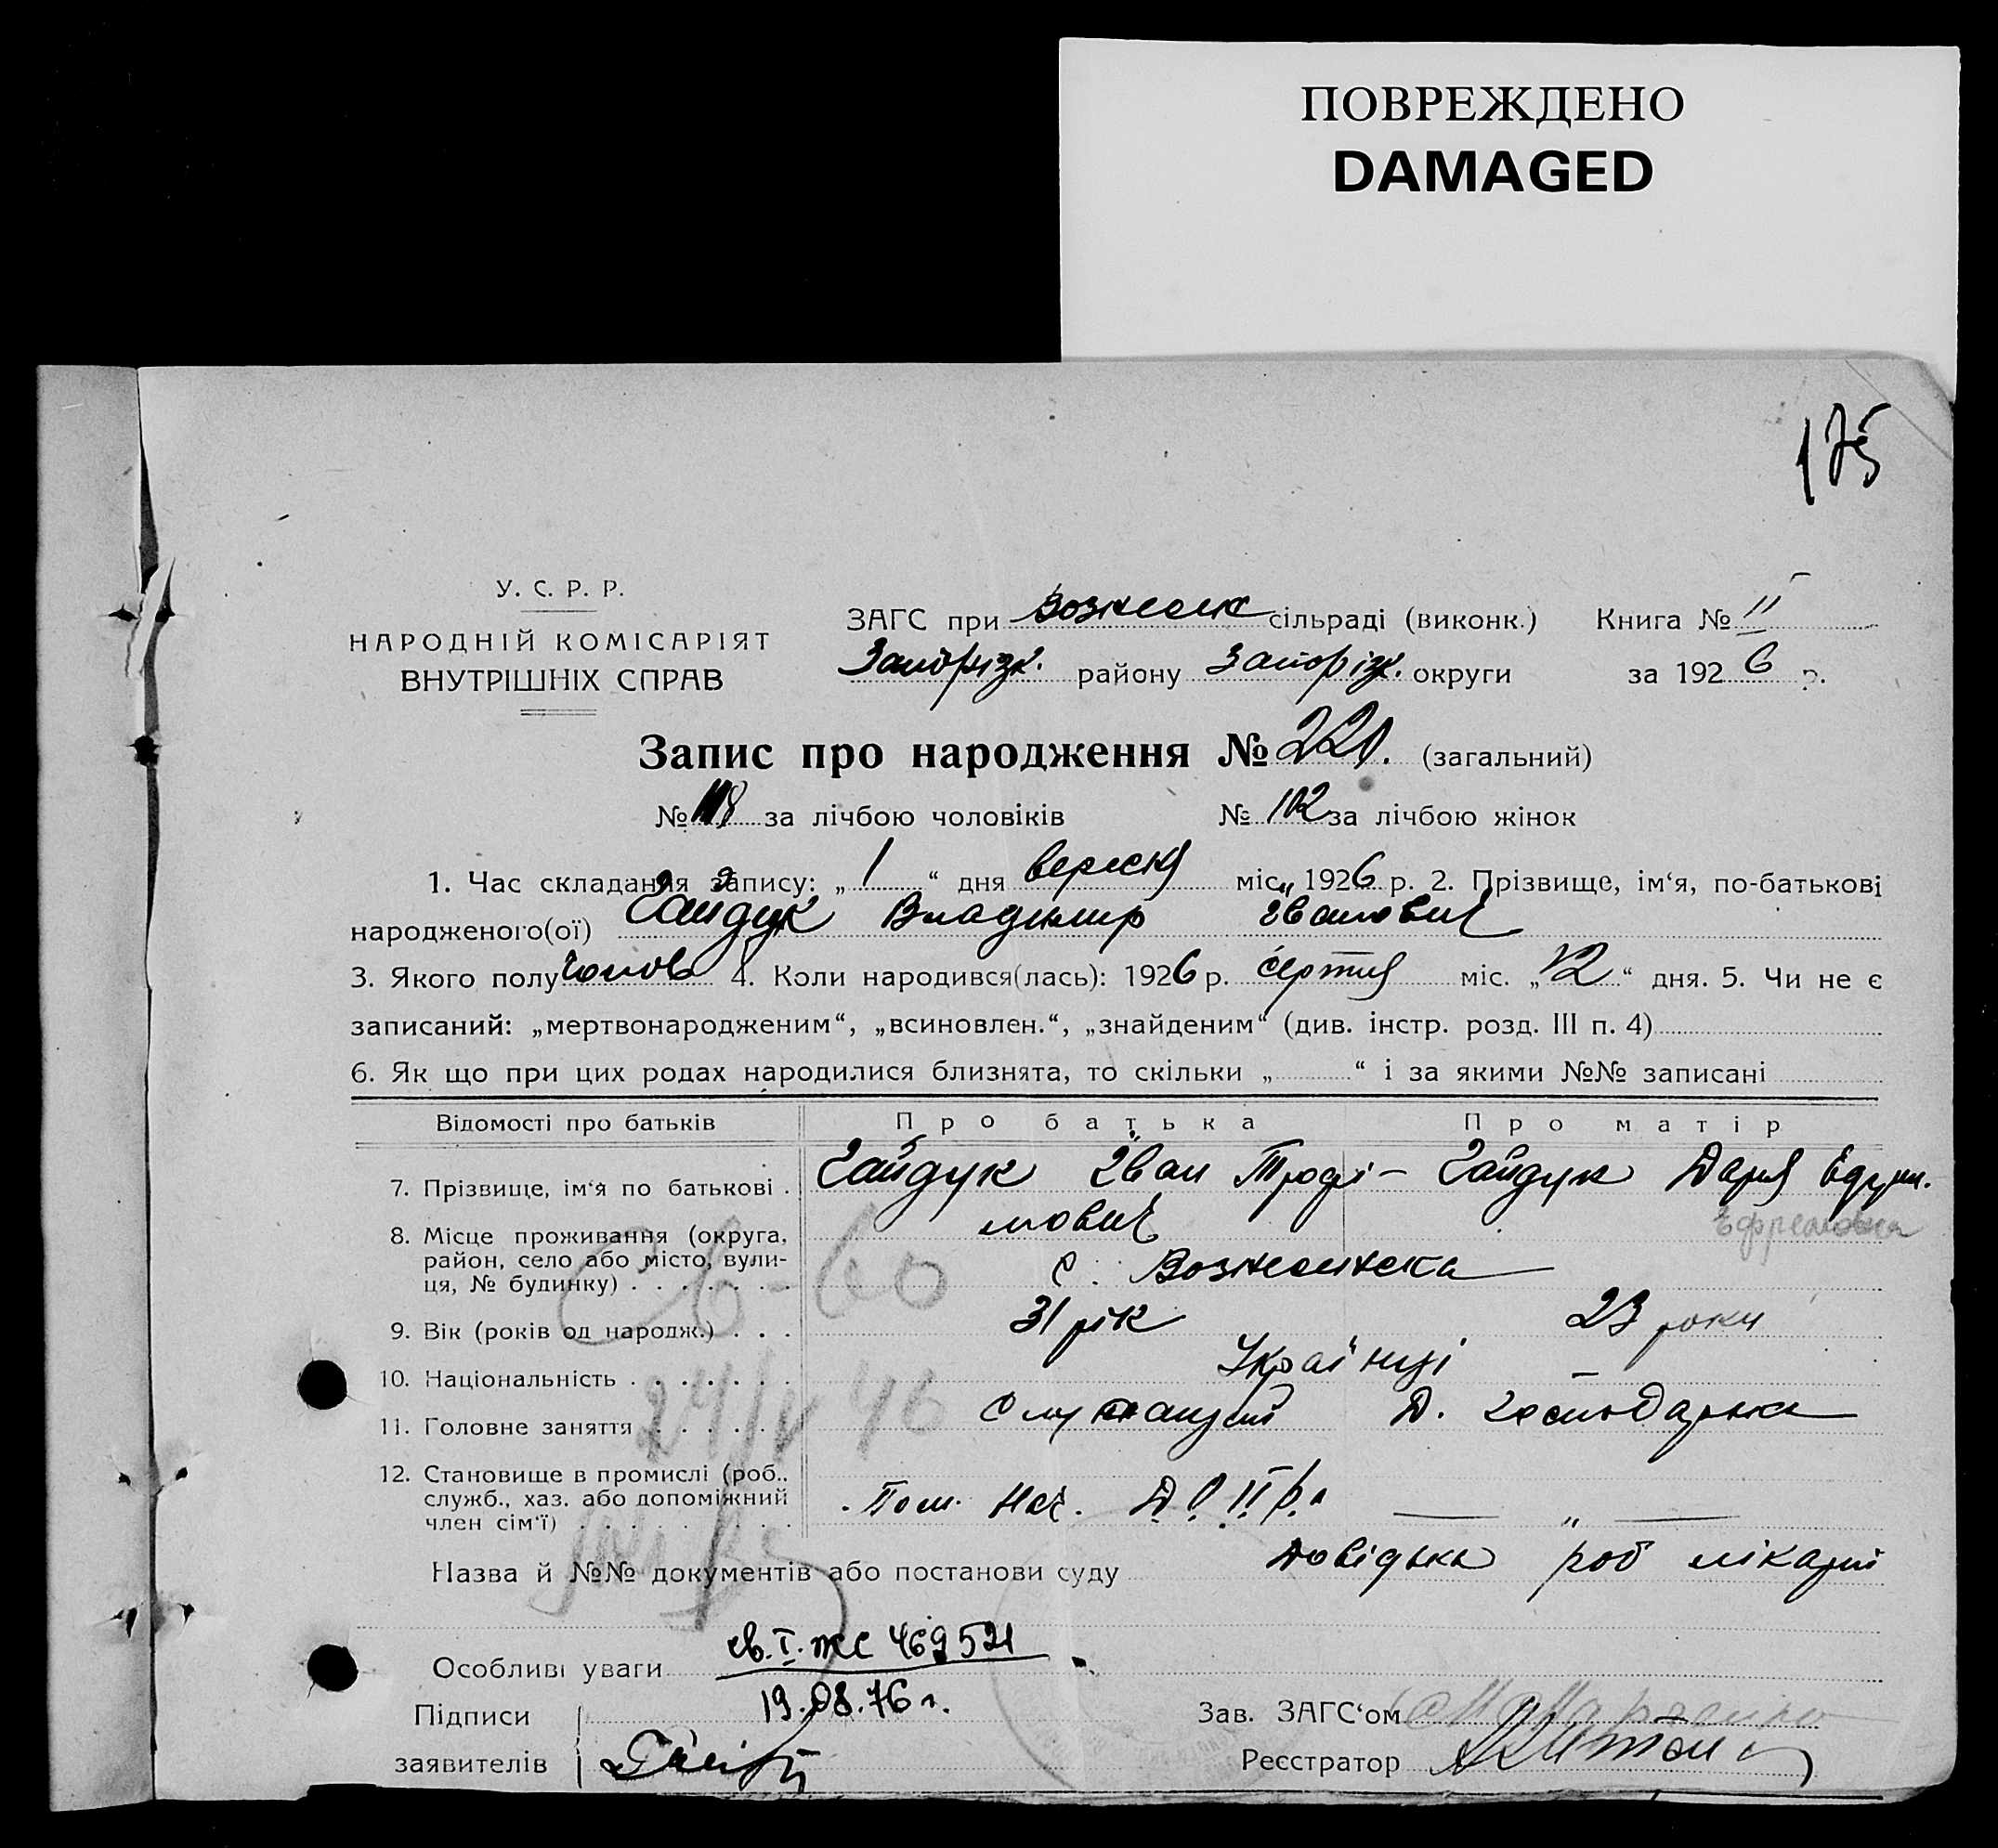 ПОВРЕЖДЕНО
DAMAGED
175
У. С. Р. Р.
НАРОДНІЙ КОМІСАРІЯТ
ВНУТРІШНІХ СПРАВ
ЗАГС при Вознесенс сільраді (виконк.) Книга № II
Запорізк. району Запорізк. округи за 1926 р.
Запис про народження № 220. (загальний)
№ 118 за лічбою чоловіків № 102 за лічбою жінок
1. Час складання запису: „ 1 “ дня вересня міс. 1926 р. 2. Прізвище, ім‘я, по-батькові
народженого(ої) Гайдук Владимир Іванович
3. Якого полу Чолов 4. Коли народився(лась): 1926 р. серпня міс. „ 12 “ дня. 5. Чи не є
записаний: „мертвонародженим“, „всиновлен.“, „знайденим“ (див. інстр. розд. III п. 4)
6. Як що при цих родах народилися близнята, то скільки „ “ і за якими №№ записані
Відомості про батьків Про батька Про матір
7. Прізвище, ім‘я по батькові . Гайдук Іван Трофі- Гайдук Дарія
мович Ефремовна
8. Місце проживання (округа,
район, село або місто, вули-
ця, № будинку) . . . . . . . с. Вознесенска
9. Вік (років од народж.) . . . 31 рік 23 роки
10. Національність . . . . . . . Українці
11. Головне заняття . . . . . . Служащий Д. Господарка
12. Становище в промислі (роб.,
служб., хаз. або допоміжний
член сім‘ї) . . . . . . . . . Пом. Нач. — „ —
Назва й №№ документів або постанови суду Довідька роб лікарні
Особливі уваги св. I-ЖС 469521
19.08.76 г.
Підписи
заявителів
Зав. ЗАГС‘ом
Реєстратор